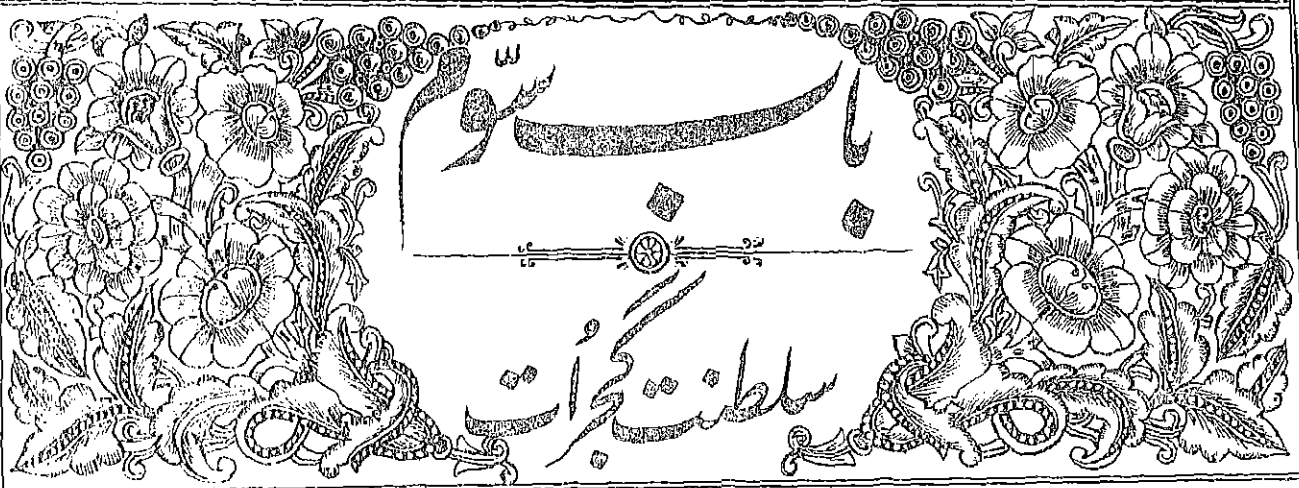 باب سوّم
سلطنت گجرأت